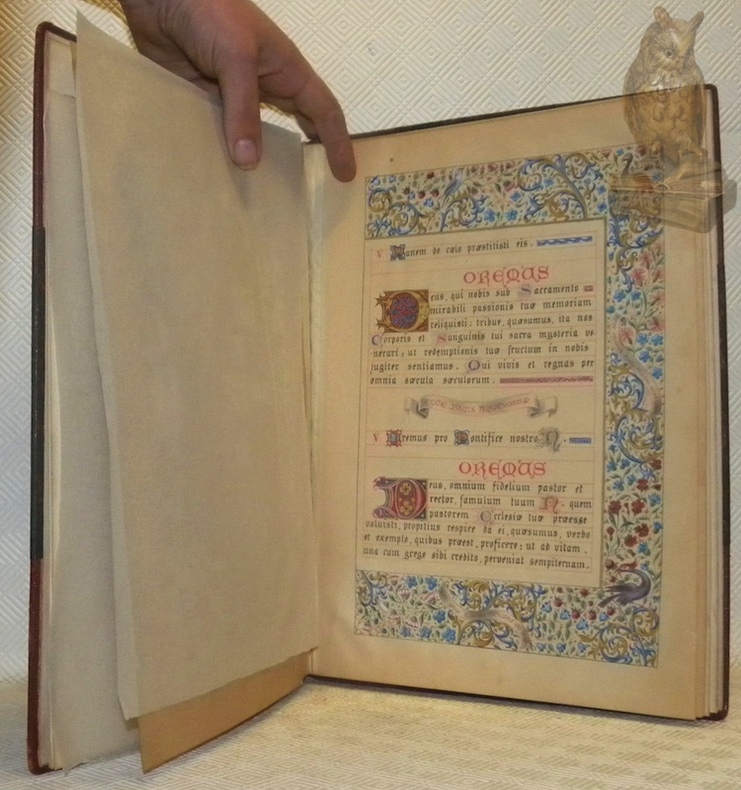 V Panem de cœlo præstitisti eis.
OREMUS
Deus, qui nobis sub Sacramento
mirabili passionis tuæ memoriam
reliquisti: tribue, quæsumus, ita nos
Corporis et Sanguinis tui sacra mysteria ve-
nerari; ut redemptionis tuæ fructum in nobis
jugiter sentiamus. Qui vivis et regnas per
omnia sæcula sæculorum.
ECCE PANIS ANGELORUM
V Oremus pro Pontifice nostro N.
OREMUS
Deus, omnium fidelium pastor et
rector, famulum tuum N. quem
pastorem Ecclesiæ tuæ præesse
voluisti, propitius respice da ei, quæsumus, verbo
et exemplo, quibus præest, proficere; ut ad vitam,
una cum grege sibi credito, perveniat sempiternam.